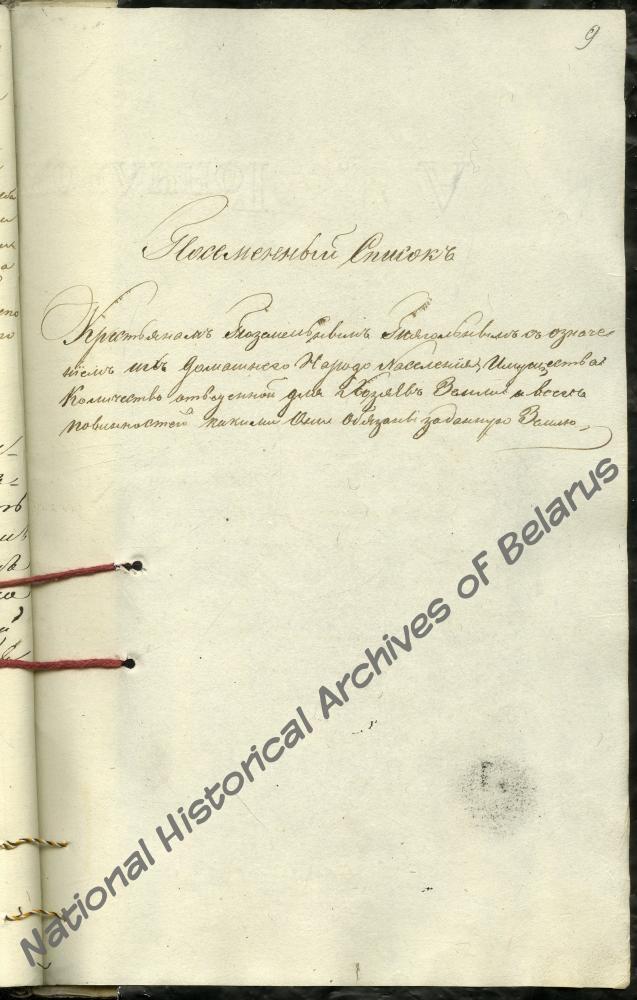 9
Поеменный Списокъ
Крестьянамъ Поземельнымъ Тягольнымъ съ означе
ніемъ ихъ домашнего Народо Населенія, Имущества
Количество отведенной для Хозяевъ Земли и всехъ
повинностей какими Они Обязаны заданную Землю.
National Historical Archives of Belarus